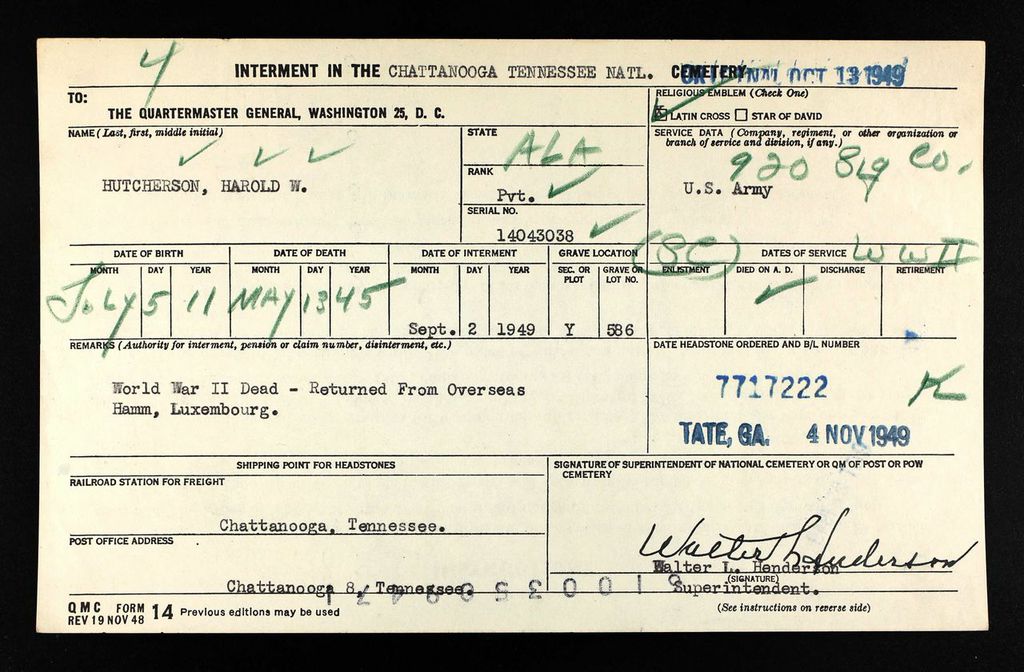 4
INTERMENT IN THE CHATTANOOGA TENNESSEE NATL. CEMETERY
OCT 13 1949
TO:
THE QUARTERMASTER GENERAL, WASHINGTON 25, D. C.
RELIGIOUS EMBLEM (Check One)
LATIN CROSS STAR OF DAVID
NAME (Last, first, middle initial)
HUTCHERSON, HAROLD W.
STATE
ALA
RANK
Pvt.
SERIAL NO.
14043038
SERVICE DATA (Company, regiment, or other organization or branch of service and division, if any.)
920 Sig Co.
U.S. Army
DATE OF BIRTH DATE OF DEATH DATE OF INTERMENT GRAVE LOCATION (SC) DATES OF SERVICE WW II
MONTH DAY YEAR MONTH DAY YEAR MONTH DAY YEAR SEC. OR PLOT GRAVE OR LOT NO. ENLISTMENT DIED ON A. D. DISCHARGE RETIREMENT
July 5 11 MAY 13 45 Sept. 2 1949 Y 586
REMARKS (Authority for interment, pension or claim number, disinterment, etc.)
World War II Dead - Returned From Overseas
Hamm, Luxembourg.
DATE HEADSTONE ORDERED AND B/L NUMBER
7717222 K
TATE, GA. 4 NOV 1949
SHIPPING POINT FOR HEADSTONES
RAILROAD STATION FOR FREIGHT
Chattanooga, Tennessee.
POST OFFICE ADDRESS
Chattanooga 8, Tennessee.
SIGNATURE OF SUPERINTENDENT OF NATIONAL CEMETERY OR QM OF POST OR POW CEMETERY
Walter L Henderson
Walter L. Henderson
(SIGNATURE)
Superintendent.
QMC FORM 14 Previous editions may be used
REV 19 NOV 48
(See instructions on reverse side)